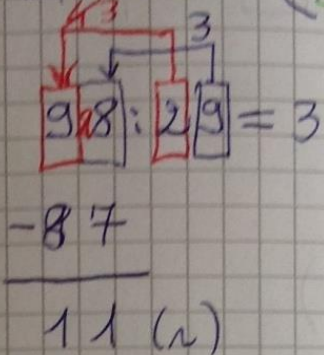 4 3 3
98 : 29 = 3
- 87
11 (r)